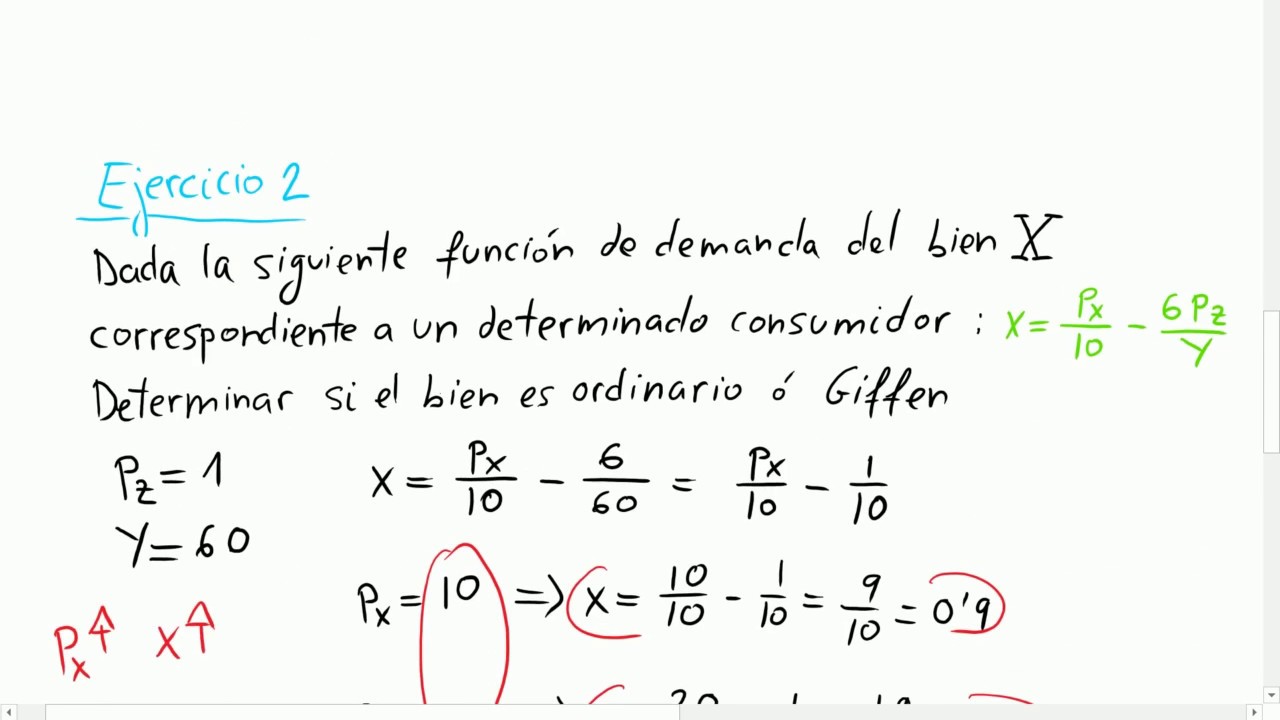 Ejercicio 2
Dada la siguiente función de demanda del bien X
correspondiente a un determinado consumidor : X = Px/10 - 6Pz/Y
Determinar si el bien es ordinario ó Giffen
Pz = 1 X = Px/10 - 6/60 = Px/10 - 1/10
Y = 60
Px = 10 => X = 10/10 - 1/10 = 9/10 = 0'9
Px↑ X↑